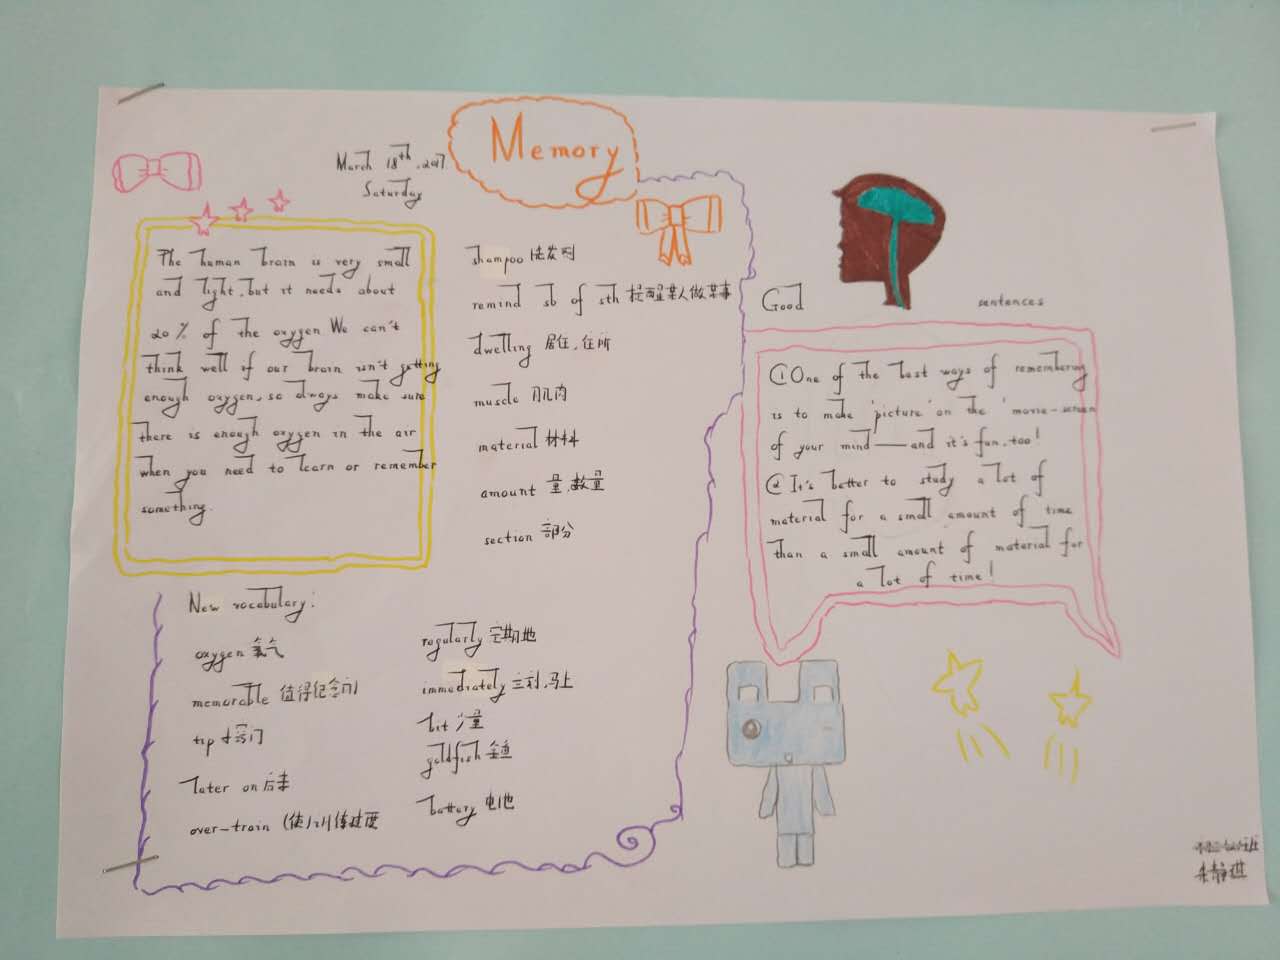 Memory
March 18th, 2017
Saturday
The human brain is very small
and light, but it needs about
20% of the oxygen We can't
think well if our brain isn't getting
enough oxygen, so always make sure
there is enough oxygen in the air
when you need to learn or remember
something.
shampoo 洗发剂
remind sb of sth 提醒某人做某事
dwelling 居住,住所
muscle 肌肉
material 材料
amount 量,数量
section 部分
New vocabulary:
oxygen 氧气
memorable 值得纪念的
tip 小窍门
later on 后来
over-train (使)训练过度
regularly 定期地
immediately 立刻,马上
bit 少量
goldfish 金鱼
battery 电池
Good sentences
①One of the best ways of remembering
is to make 'picture' on the 'movie-screen
of your mind——and it's fun, too!
②It's better to study a lot of
material for a small amount of time
than a small amount of material for
a lot of time!